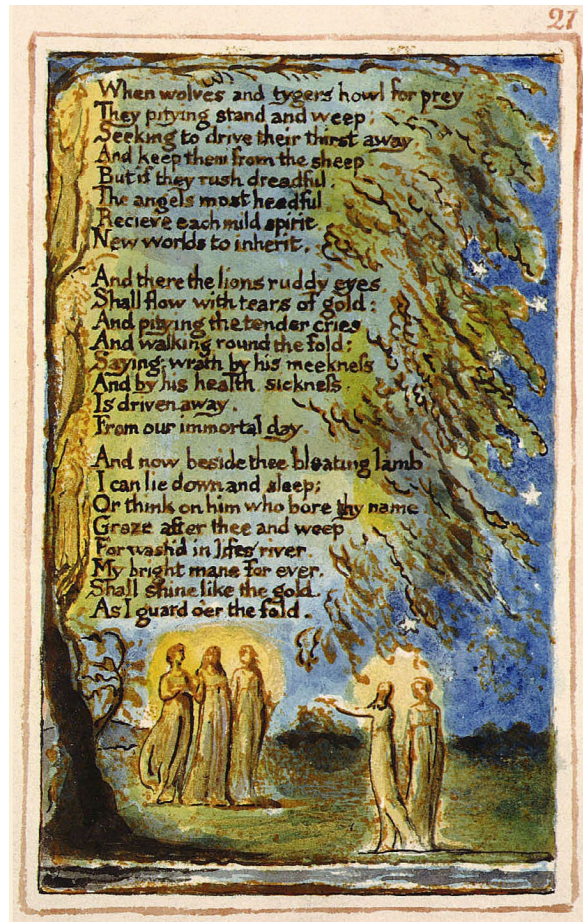 27
When wolves and tygers howl for prey
They pitying stand and weep;
Seeking to drive their thirst away
And keep them from the sheep
But if they rush dreadful.
The angels most heedful
Recieve each mild spirit.
New worlds to inherit.
And there the lions ruddy eyes
Shall flow with tears of gold:
And pitying the tender cries
And walking round the fold:
Saying: wrath by his meekness
And by his health sickness.
Is driven away.
From our immortal day.
And now beside thee bleating lamb
I can lie down and sleep;
Or think on him who bore thy name
Graze after thee and weep
For wash'd in lifes river.
My bright mane for ever.
Shall shine like the gold.
As I guard oer the fold.